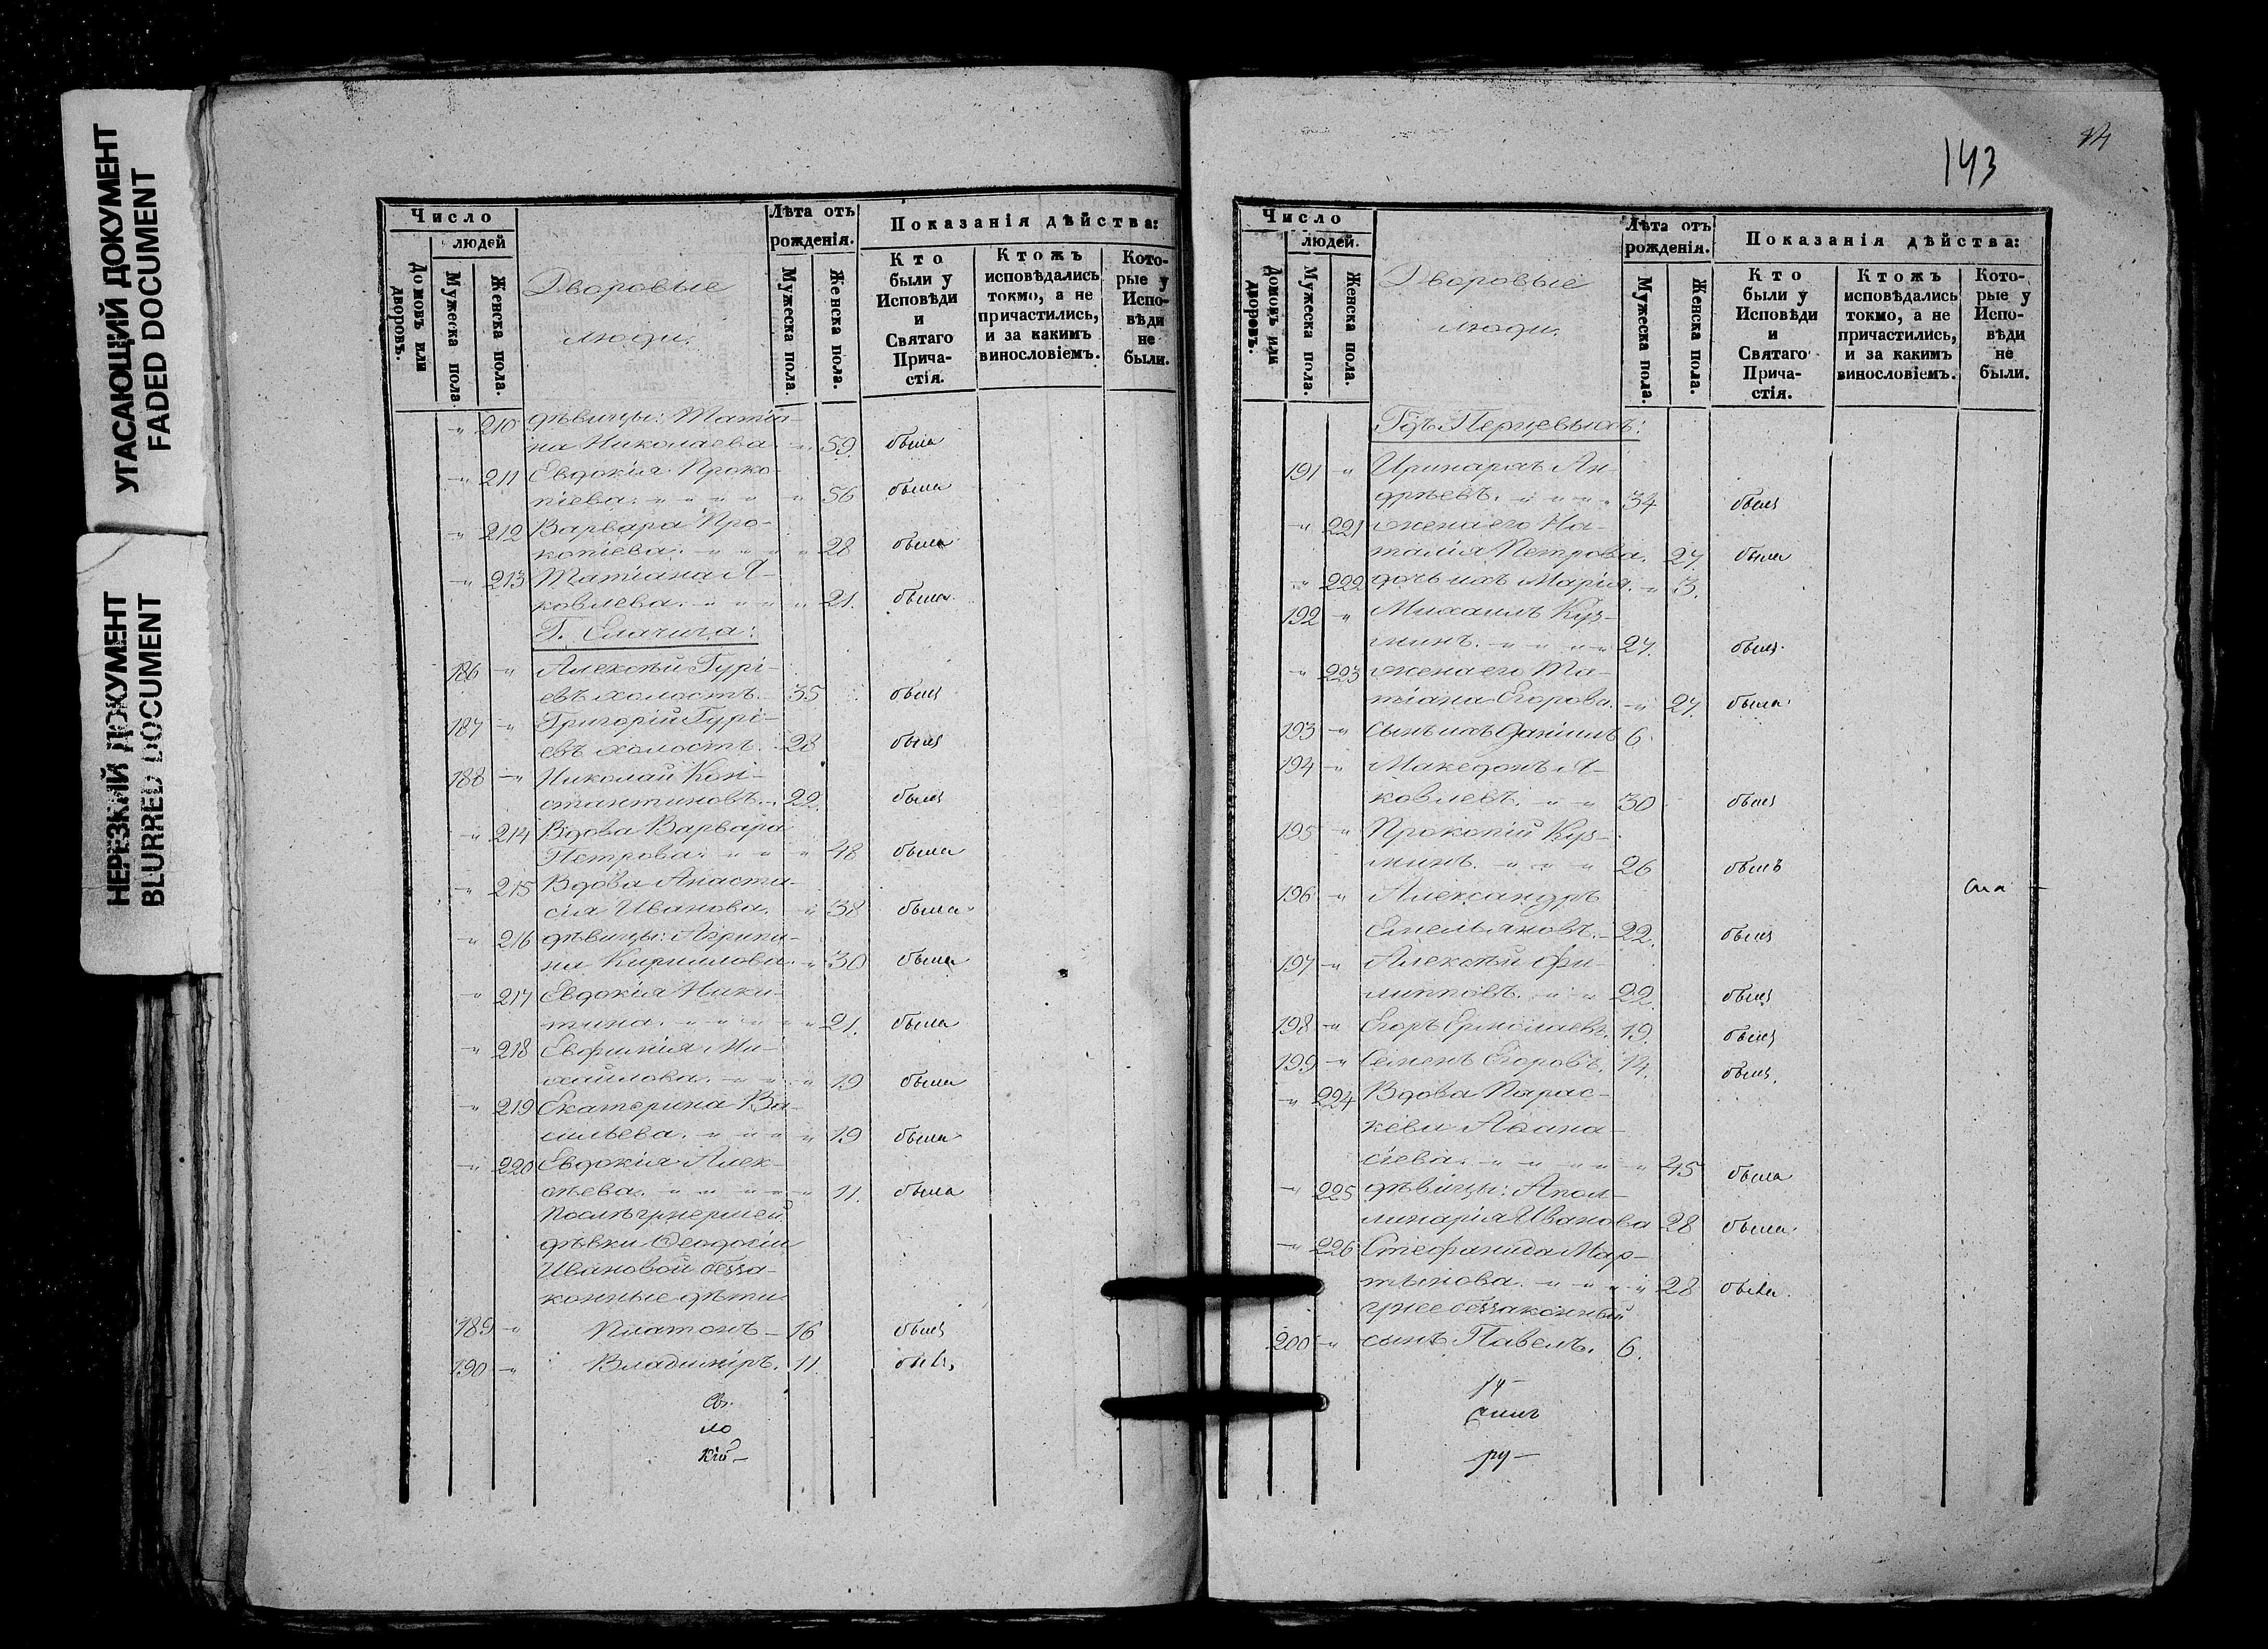 УГАСАЮЩИЙ ДОКУМЕНТ
FADED DOCUMENT
НЕРЕЗКИЙ ДОКУМЕНТ
BLURRED DOCUMENT
Число
людей
Домовъ или дворовъ.
Мужеска пола.
Женска пола.
Дворовые
люди.
Лѣта отъ
рожденія.
Мужеска пола
Женска пола.
Показанія дѣйства:
Кто
были у
Исповѣди
и
Святаго
Прича-
стія.
Ктожъ
исповѣдались
токмо, а не
причастились,
и за какимъ
винословіемъ.
Кото-
рые у
Испо-
вѣди
не
были.
" 210 дѣвицы: Татіа-
на Николаева. " 59. была
" 211 Евдокія Проко-
піева. " " " " " 56 была
" 212 Варвара Про-
копіева. " " " " 28 была
" 213 Татіана Я-
ковлева. " " " " 21. была
Г. Елагина:
186 " Алексѣй Гурі-
евъ холостъ. 35 былъ
187 " Григорій Гурі-
евъ холостъ. 28 былъ
188 " Николай Кон-
стантиновъ. 22. былъ
" 214 Вдова Варвара
Петрова. " " " 48 была
" 215 Вдова Анаста-
сія Иванова. " 38 была
" 216 дѣвицы: Агрипи-
на Кириллова. " 30 была
" 217 Евдокія Ники-
тина. " " " " 21. была
" 218 Евфимія Ми-
хайлова. " " " 19 была
" 219 Екатерина Ва-
сильева. " " " " 19 была
" 220 Евдокія Алек-
сѣева. " " " " " 11. была
Послѣ умершей
дѣвки Ѳеодосіи
Ивановой безза-
конные дѣти
189 " Платонъ 16 былъ
190 " Владиміръ. 11. былъ
143
Число
людей.
Домовъ или дворовъ.
Мужеска пола.
Женска пола.
Дворовые
люди.
Лѣта отъ
рожденія.
Мужеска пола.
Женска пола.
Показанія дѣйства:
Кто
были у
Исповѣди
и
Святаго
Прича-
стія.
Ктожъ
исповѣдались
токмо, а не
причастились,
и за какимъ
винословіемъ.
Кото-
рые у
Испо-
вѣди
не
были.
Гдъ Перцевыхъ:
191 " Иринархъ Ан-
дрѣевъ. " " " " 34 былъ
" 221 жена его На-
талія Петрова. 27. была
" 222 дочь ихъ Марія. " 3.
192 " Михаилъ Куз-
минъ. " " " " 27. былъ
" 223 жена его Та-
тіана Егорова. " 27. была
193 " Сынъ ихъ Даніилъ 6.
194 " Македонъ Я-
ковлевъ. " " 30 былъ
195 " Прокопій Куз-
минъ. " " " 26 былъ
196 " Александръ
Емельяновъ. 22. былъ
197 " Алексѣй Фи-
липповъ. " " 22. былъ
198 " Егоръ Ермолаевъ. 19. былъ
199 " Семенъ Егоровъ. 14. былъ.
" 224 Вдова Парас-
кева Аѳана-
сіева. " " " " " 45 была
" 225 дѣвицы: Апол-
линарія Иванова 28 была
" 226 Стефанида Мар-
тынова. " " " " 28 была
у нее беззаконный
200 " сынъ Павелъ. 6.